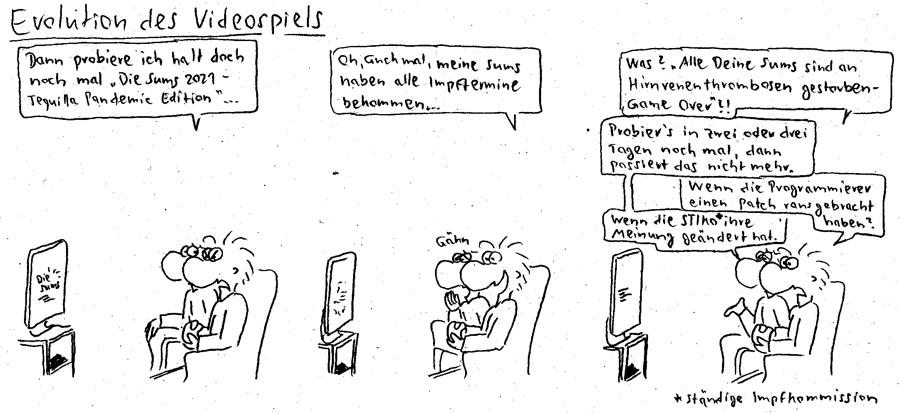 Evolution des Videospiels
Dann probiere ich halt doch
noch mal „Die Sums 2021 -
Tequilla Pandemic Edition"...
Oh, guck mal, meine Sums
haben alle Impftermine
bekommen...
Was? „Alle Deine Sums sind an
Hirnvenenthrombosen gestorben-
Game Over"?!
Probier's in zwei oder drei
Tagen noch mal, dann
passiert das nicht mehr.
Wenn die Programmierer
einen Patch rausgebracht
haben?
Wenn die STIKO* ihre
Meinung geändert hat.
Die
Sums
Gähn
*ständige Impfkommission